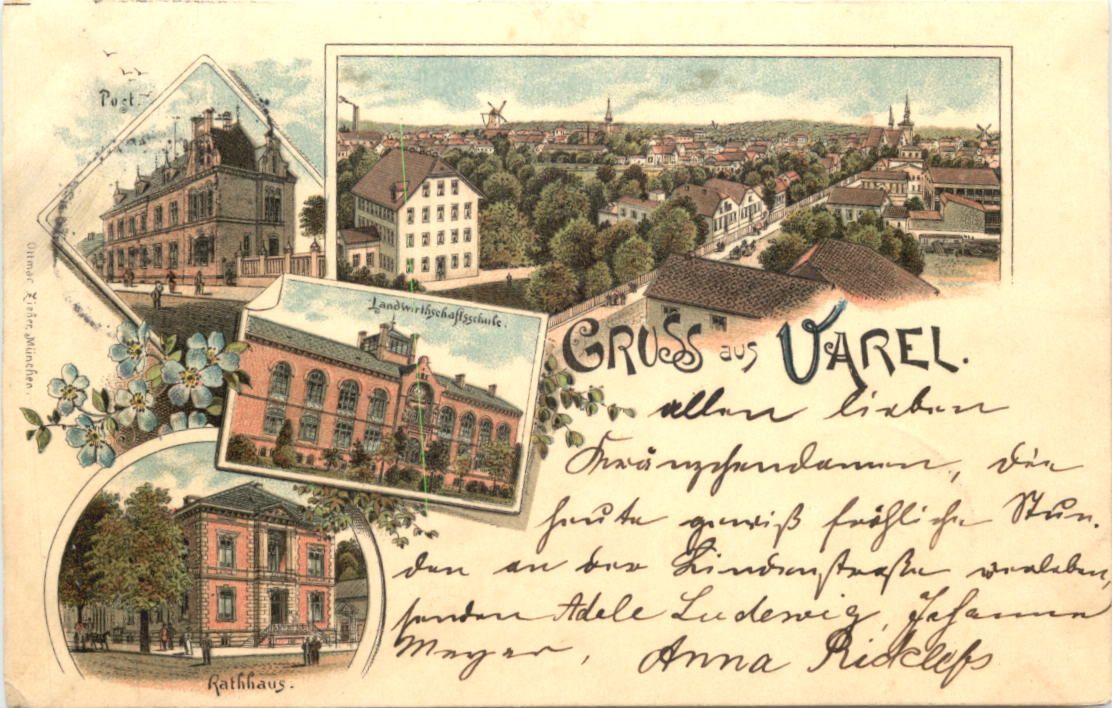 Post.
Landwirthschaftsschule.
Ottmar Zieher, München.
GRUSS aus VAREL.
allen lieben
Kränzchendamen, die
heute gewiß fröhliche Stun-
den an der Lindenstraße verleben,
senden Adele Ludewig, Johanne
Meyer, Anna Ricklefs
Rathhaus.